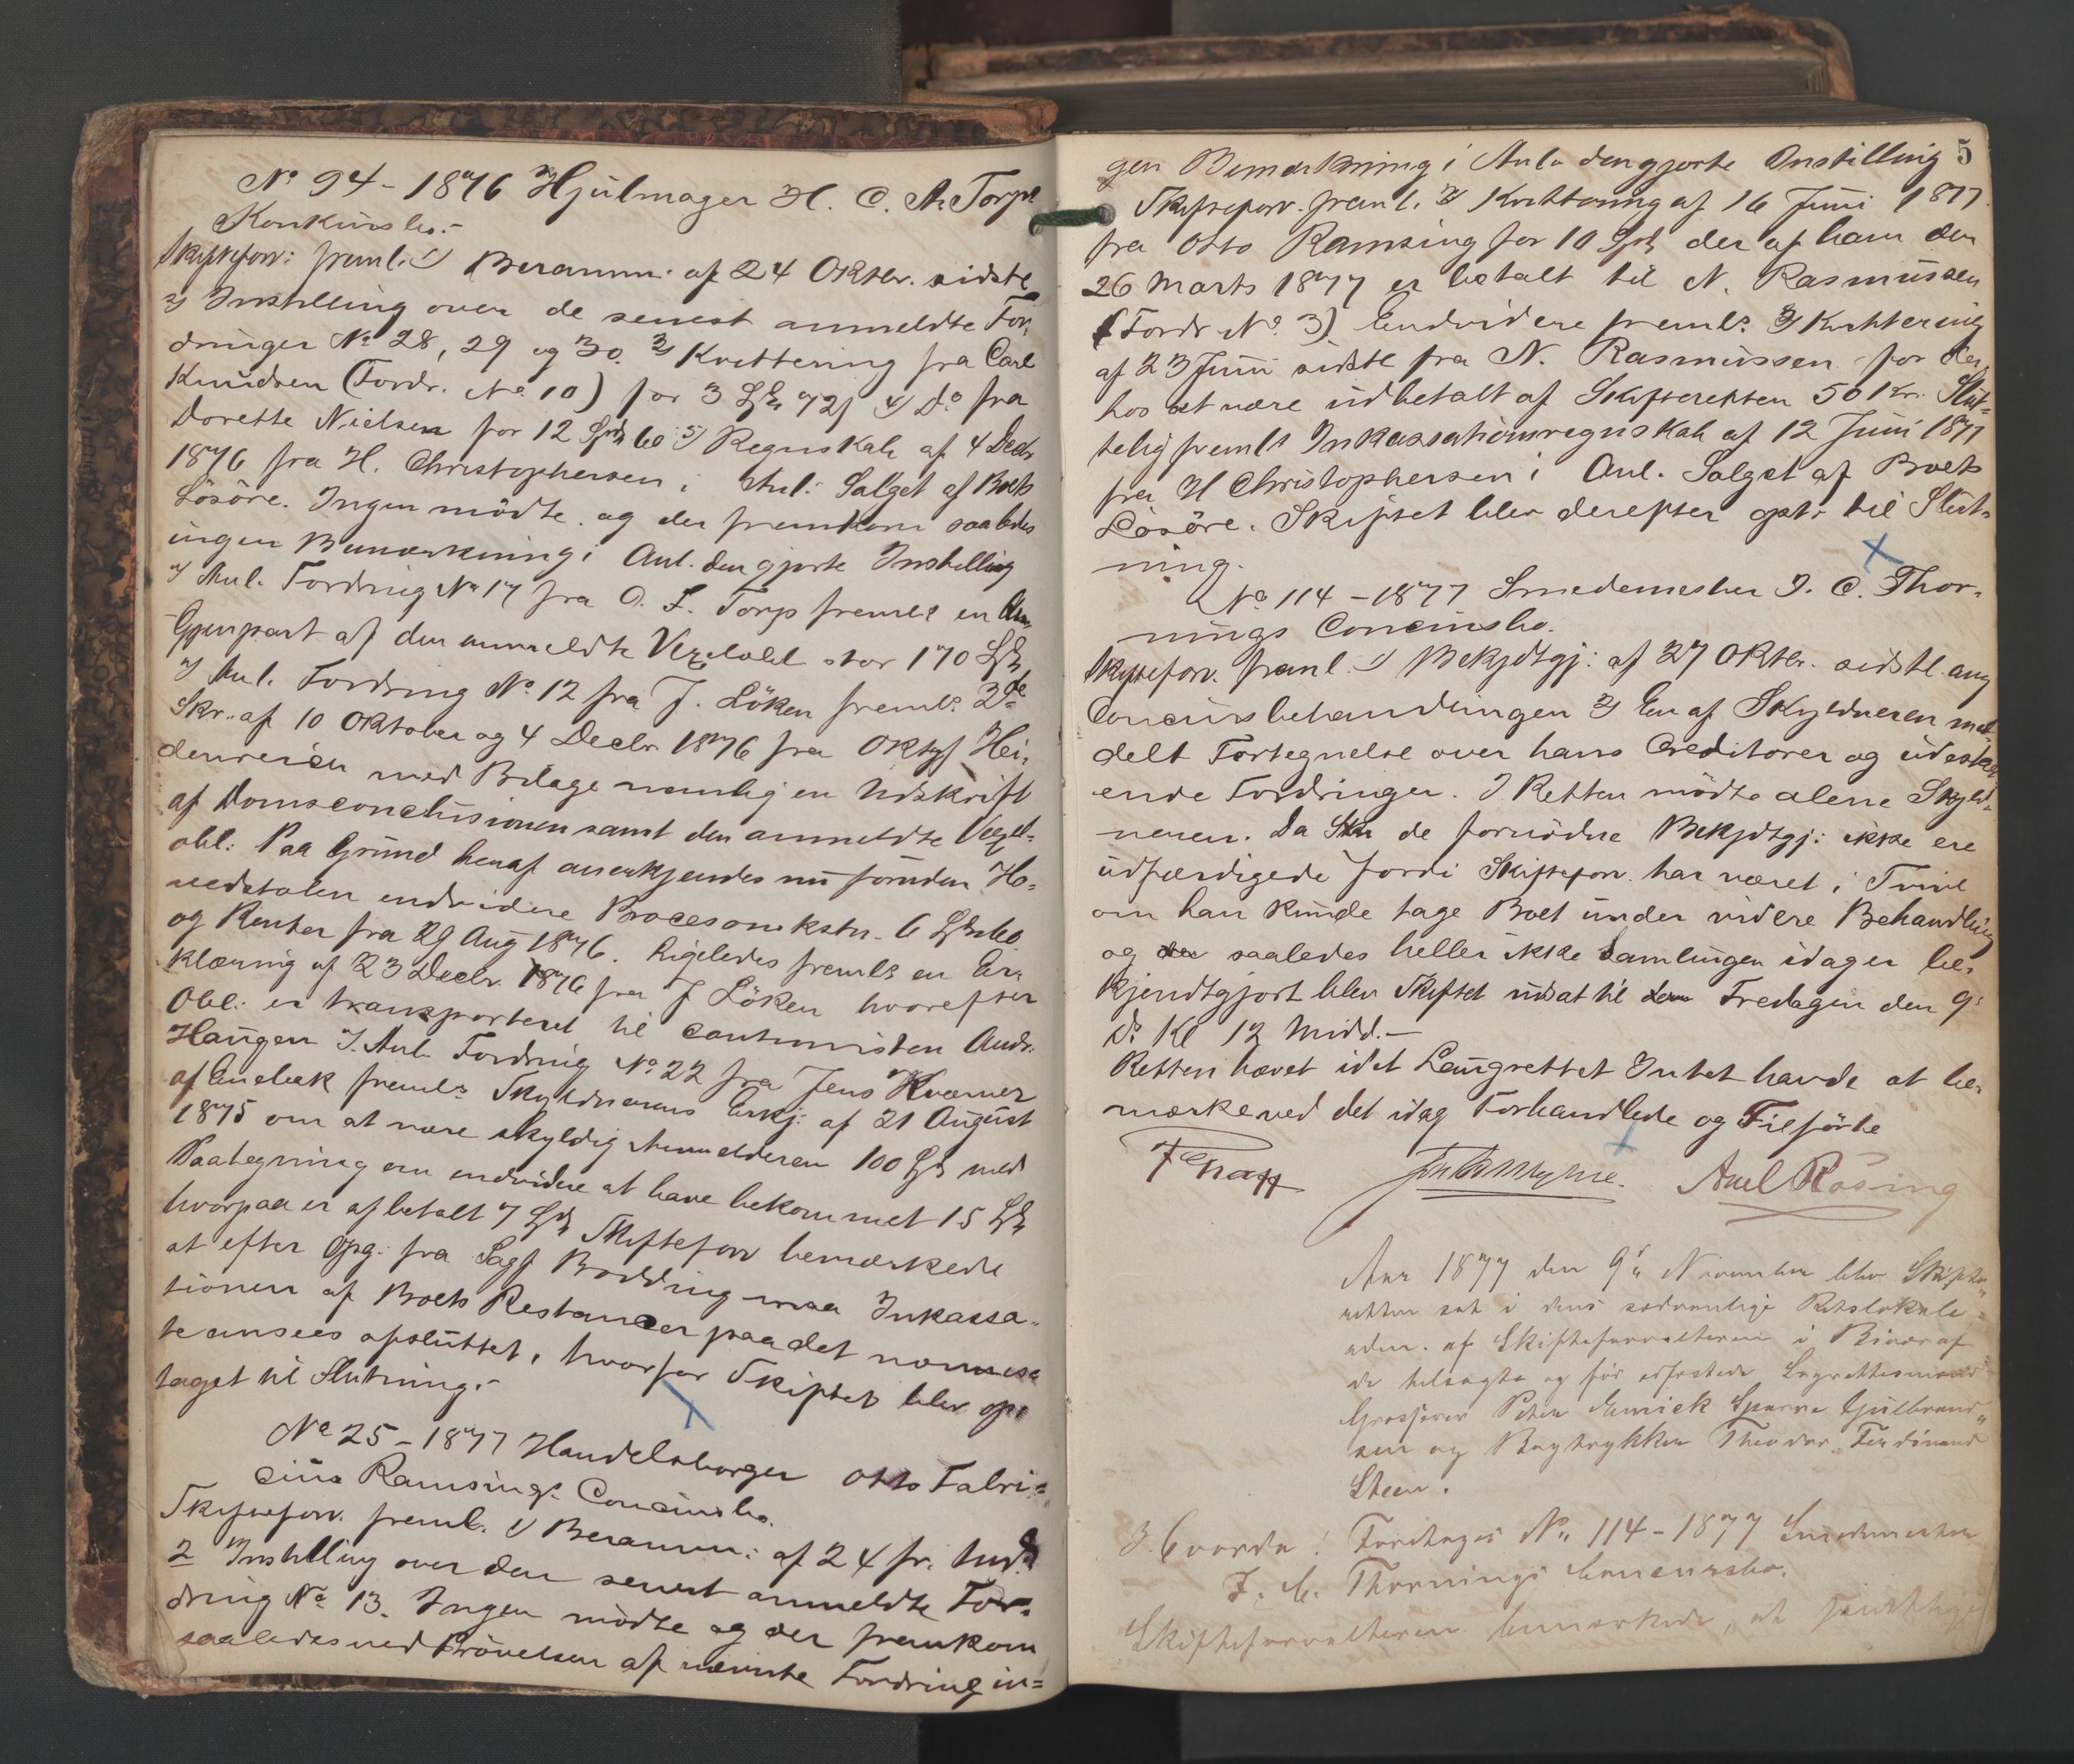 No 94 – 1876 Hjulmager H. C. A. Torps
Konkursbo.–
Skifteforv: freml: 1) Beramm: af 24 Oktbr. sidste
2) Instilling over de senest anmeldte For-
dringer No 28, 29 og 30. 3) Kvittering fra Carl
Knudsen (Fordr. No 10) for 3 Spd 72 s 4) Do fra
Dorette Nielsen for 12 Spd 60 5) Regnskab af 4 Decbr
1876 fra H. Christophersen i Anl: Salget af Boets
Lösöre. Ingen mödte og der fremkom saaledes
ingen Bemærkning i Anl. den gjorte Instilling
I Anl. Fordring No 17 fra O. L. Torp fremls en
Gjenpart af den anmeldte Vexelobl. stor 170 Spd
I Anl. Fordring No 12 fra J. Löken fremls. 2de
Skr. af 10 Oktober og 4 Decbr 1876 fra Oktsgf Hei-
denreich med Bilage nemlig en Udskrift
af Domsconclusionen samt den anmeldte Vexel-
obl: Paa Grund heraf anerkjendes nu foruden Ho-
vedstolen endvidere Procesomkstn. 6 Spd 60
og Renter fra 29 Aug 1876. Ligeledes fremls en Er-
klæring af 23 Decbr 1876 fra J Löken hvorefter
Obl: er transporteret til Cautionisten Andr.
Haugen I. Anl. Fordring No 22 fra Jens Kværner
af Enebak fremls Skyldnerens Erkj: af 21 August
1875 om at være skyldig Anmelderen 100 Spd med
Paategning om endvidere at have bekommet 15 Spd
hvorpaa er afbetalt 7 Spd Skifteforv bemærkede
at efter Opg: fra Sagf Bodding maa Inkassa-
tionen af Boets Restancer paa det nærmeste
ansees afsluttet, hvorfor Skiftet blev op-
taget til Slutning.–
No 25 – 1877 Handelsborger Otto Fabri-
cius Ramsings Concursbo.
Skifteforv. freml. 1) Beramm: af 24 f.
2 Instilling over den senest anmeldte For-
dring No 13. Ingen mödte og der fremkom
saaledes ved Prövelsen af nævnte Fordring in=
5
gen Bemærkning i Anl. den gjorte Instilling
Skifteforv. freml. 3) Kvittering af 16 Juni 1877
fra Otto Ramsing for 10 Spd der af ham den
26 Marts 1877 er betalt til N. Rasmussen
(Fordr No 3) Endvidere fremls. 4) Kvittering
af 23 Juni sidste fra N. Rasmussen for der
hos at være udbetalt af Skifteretten 50 Kr. Slut-
telig fremls Inkassationsregnskab af 12 Juni 1877
fra H Christophersen i Anl. Salget af Boets
Lösöre. Skiftet blev derefter opt: til Slut-
ning.
No 114 – 1877 Smedemester J. C. Thor-
nings Concursbo.
Skifteforv. freml. 1) Bekjdtgj: af 27 Oktbr. sidstl. ang
Concursbehandlingen 2) En af Skyldneren med-
delt Fortegnelse over hans Creditorer og udestaa-
ende Fordringer. I Retten mödte alene Skyld-
neren. Da de fornödne Bekjdtgj: ikke ere
udfærdigede fordi Skifteforv. har været i Tvivl
om han kunde tage Boet under videre Behandling
og saaledes heller ikke Samlingen idag er be-
kjendtgjort blev Skiftet udsat til Fredagen den 9
ds. Kl 12 Midd.–
Retten hævet idet Laugrettet Intet havde at be-
mærke ved det idag Forhandlede og Tilförte
Axel Rösing
Aar 1877 den 9de November blev Skifte-
retten sat i dens sædvanlige Retslokale
adm. af Skifteforvalteren i Nærværelse af
de tilsagte og för edfæstede Lagrettesmænd
Grosserer Peter Sparre Gulbrand-
sen og Bogtrykker Theodor Ferdinand
Steen.
Hvorda: Foretoges No 114 – 1877 Smedemester
J. C. Thornings Concursbo.
Skifteforvalteren bemærkede, at